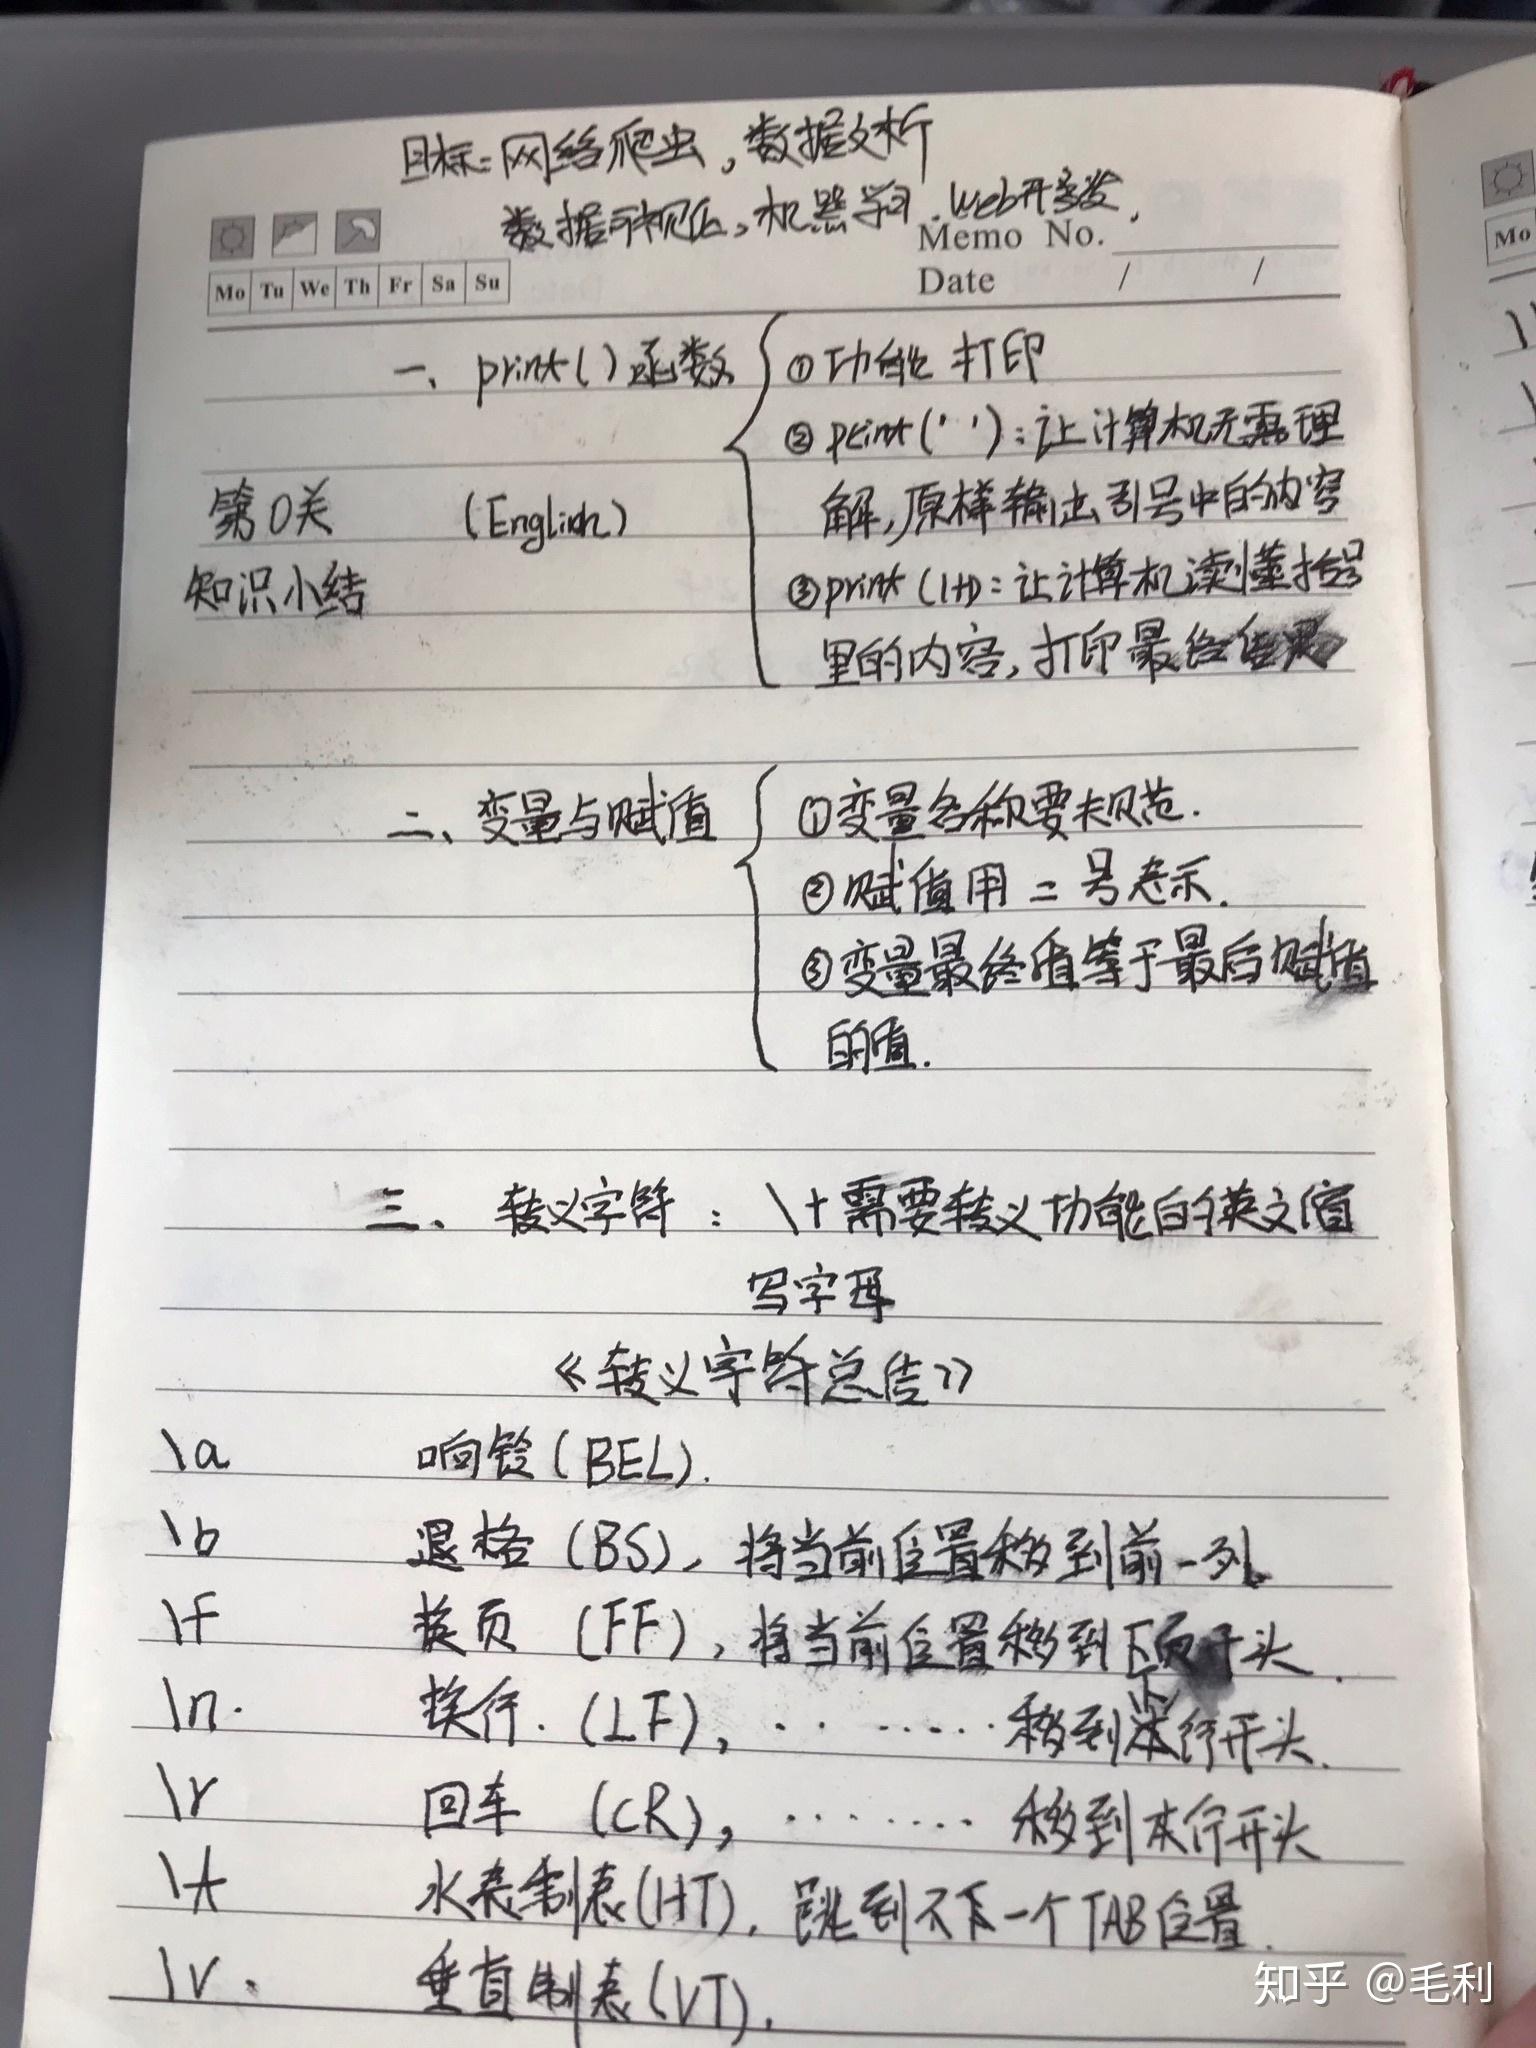 目标：网络爬虫，数据分析
数据可视化，机器学习，web开发，
Memo No.
Date / /
Mo Tu We Th Fr Sa Su
Mo
一、print()函数
①功能 打印
②print(' ')：让计算机无需理
解，原样输出引号中的内容
第0关
(English)
知识小结
③print(1+1)：让计算机读懂括号
里的内容，打印最终结果
二、变量与赋值
①变量名称要规范.
②赋值用 = 号表示.
③变量最终值等于最后赋值
的值.
三、转义字符：\+需要转义功能的英文缩
写字母
《转义字符总结》
\a 响铃(BEL).
\b 退格(BS)，将当前位置移到前一列。
\f 换页(FF)，将当前位置移到下页开头.
\n. 换行.(LF)，········移到下行开头.
\r 回车(CR)，········移到本行开头
\t 水平制表(HT)，跳到下一个TAB位置.
\v. 垂直制表(VT).
知乎 @毛利